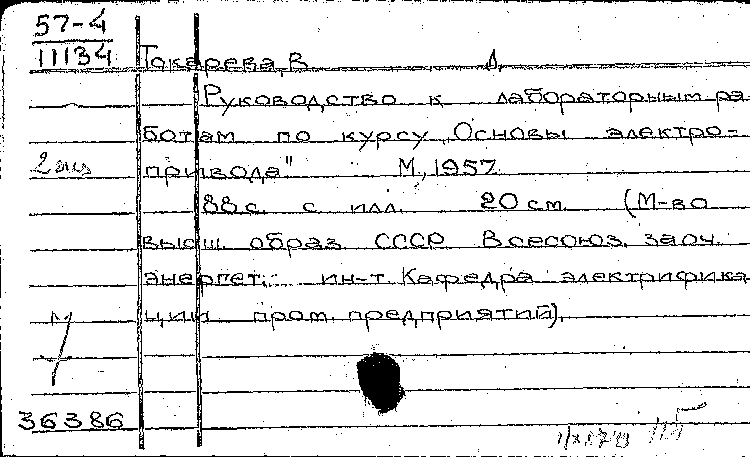 57-4
11134
Токарева, В. Д.
Руководство к лабораторным ра
ботам по курсу „Основы электро-
2 экз
привода" М., 1957.
88 с. с илл. 20 см. (М-во
высш. образ. СССР. Всесоюз. заоч.
энергет. ин-т. Кафедра электрифика
ции пром. предприятий).
36386